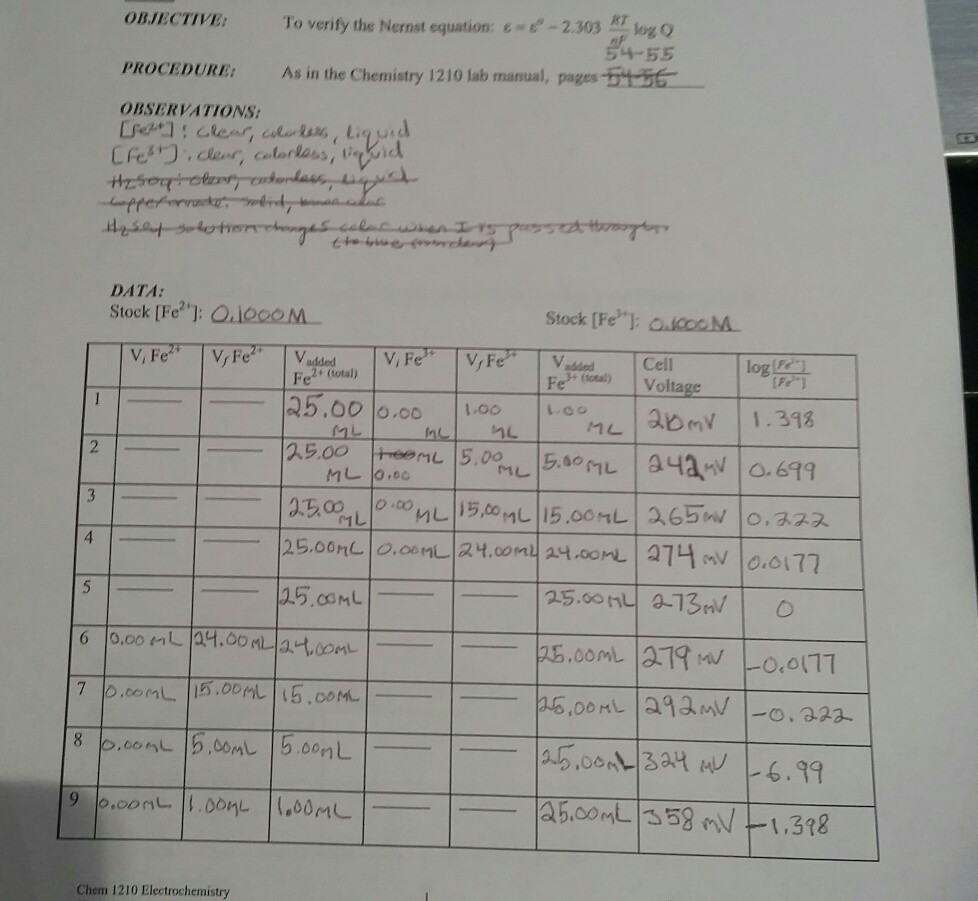 OBJECTIVE: To verify the Nernst equation: ε = ε° − 2.303 RT/nF log Q
54-55
PROCEDURE: As in the Chemistry 1210 lab manual, pages 54-56
OBSERVATIONS:
[Fe²⁺]: clear, colorless, liquid
[Fe³⁺]: clear, colorless, liquid
H2SO4: clear, colorless, liquid
solid,
H2SO4 solution changes color when I is passed through
DATA:
Stock [Fe²⁺]: 0.1000M Stock [Fe³⁺]: 0.1000M
Vᵢ Fe²⁺ V_f Fe²⁺ V added Fe²⁺ (total) Vᵢ Fe³⁺ V_f Fe³⁺ V added Fe³⁺ (total) Cell Voltage log [Fe²⁺]/[Fe³⁺]
1 — — 25.00 mL 0.00 mL 1.00 mL 1.00 mL mV 1.398
2 — — 25.00 mL 1.00 mL 0.00 5.00 mL 5.00 mL 242 mV 0.699
3 — — 25.00 mL 0.00 mL 15.00 mL 15.00 mL 265 mV 0.222
4 — — 25.00 mL 0.00 mL 24.00 mL 24.00 mL 274 mV 0.0177
5 — — 25.00 mL — — 25.00 mL 273 mV 0
6 0.00 mL 24.00 mL 24.00 mL — — 25.00 mL 279 mV -0.0177
7 0.00 mL 15.00 mL 15.00 mL — — 25.00 mL 292 mV -0.222
8 0.00 mL 5.00 mL 5.00 mL — — 25.00 mL 324 mV -6.99
9 0.00 mL 1.00 mL 1.00 mL — — 25.00 mL 358 mV -1.398
Chem 1210 Electrochemistry 1